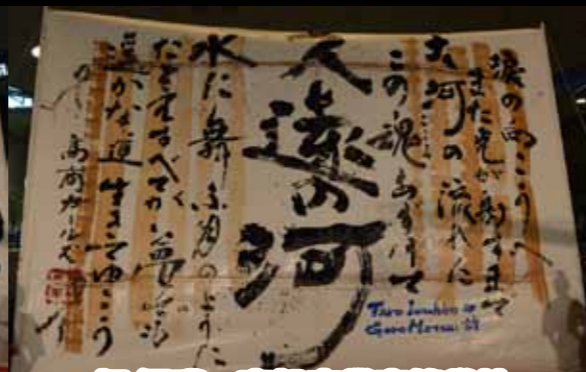 涙の向こうへ
また光が射すまで
大河の流れに
この魂あずけて
久遠の河
水に舞う月のように
たとえすべてが夢でも
遥かな道生きてゆこう
高商ガールズ
Taro Iwashiro 曲
Goro Matsui 詩